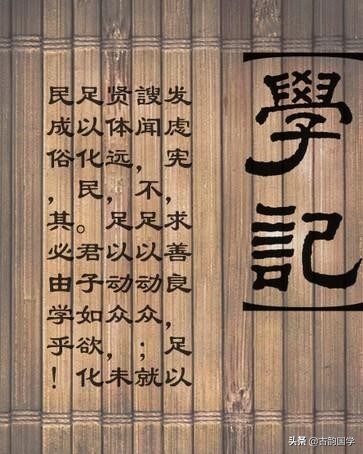 【學記】
发虑宪，求善良，足以
謏闻，不足以动众；就
贤体远，足以动众，未
足以化民。君子如欲化
民成俗，其必由学乎！
头条 @古韵国学